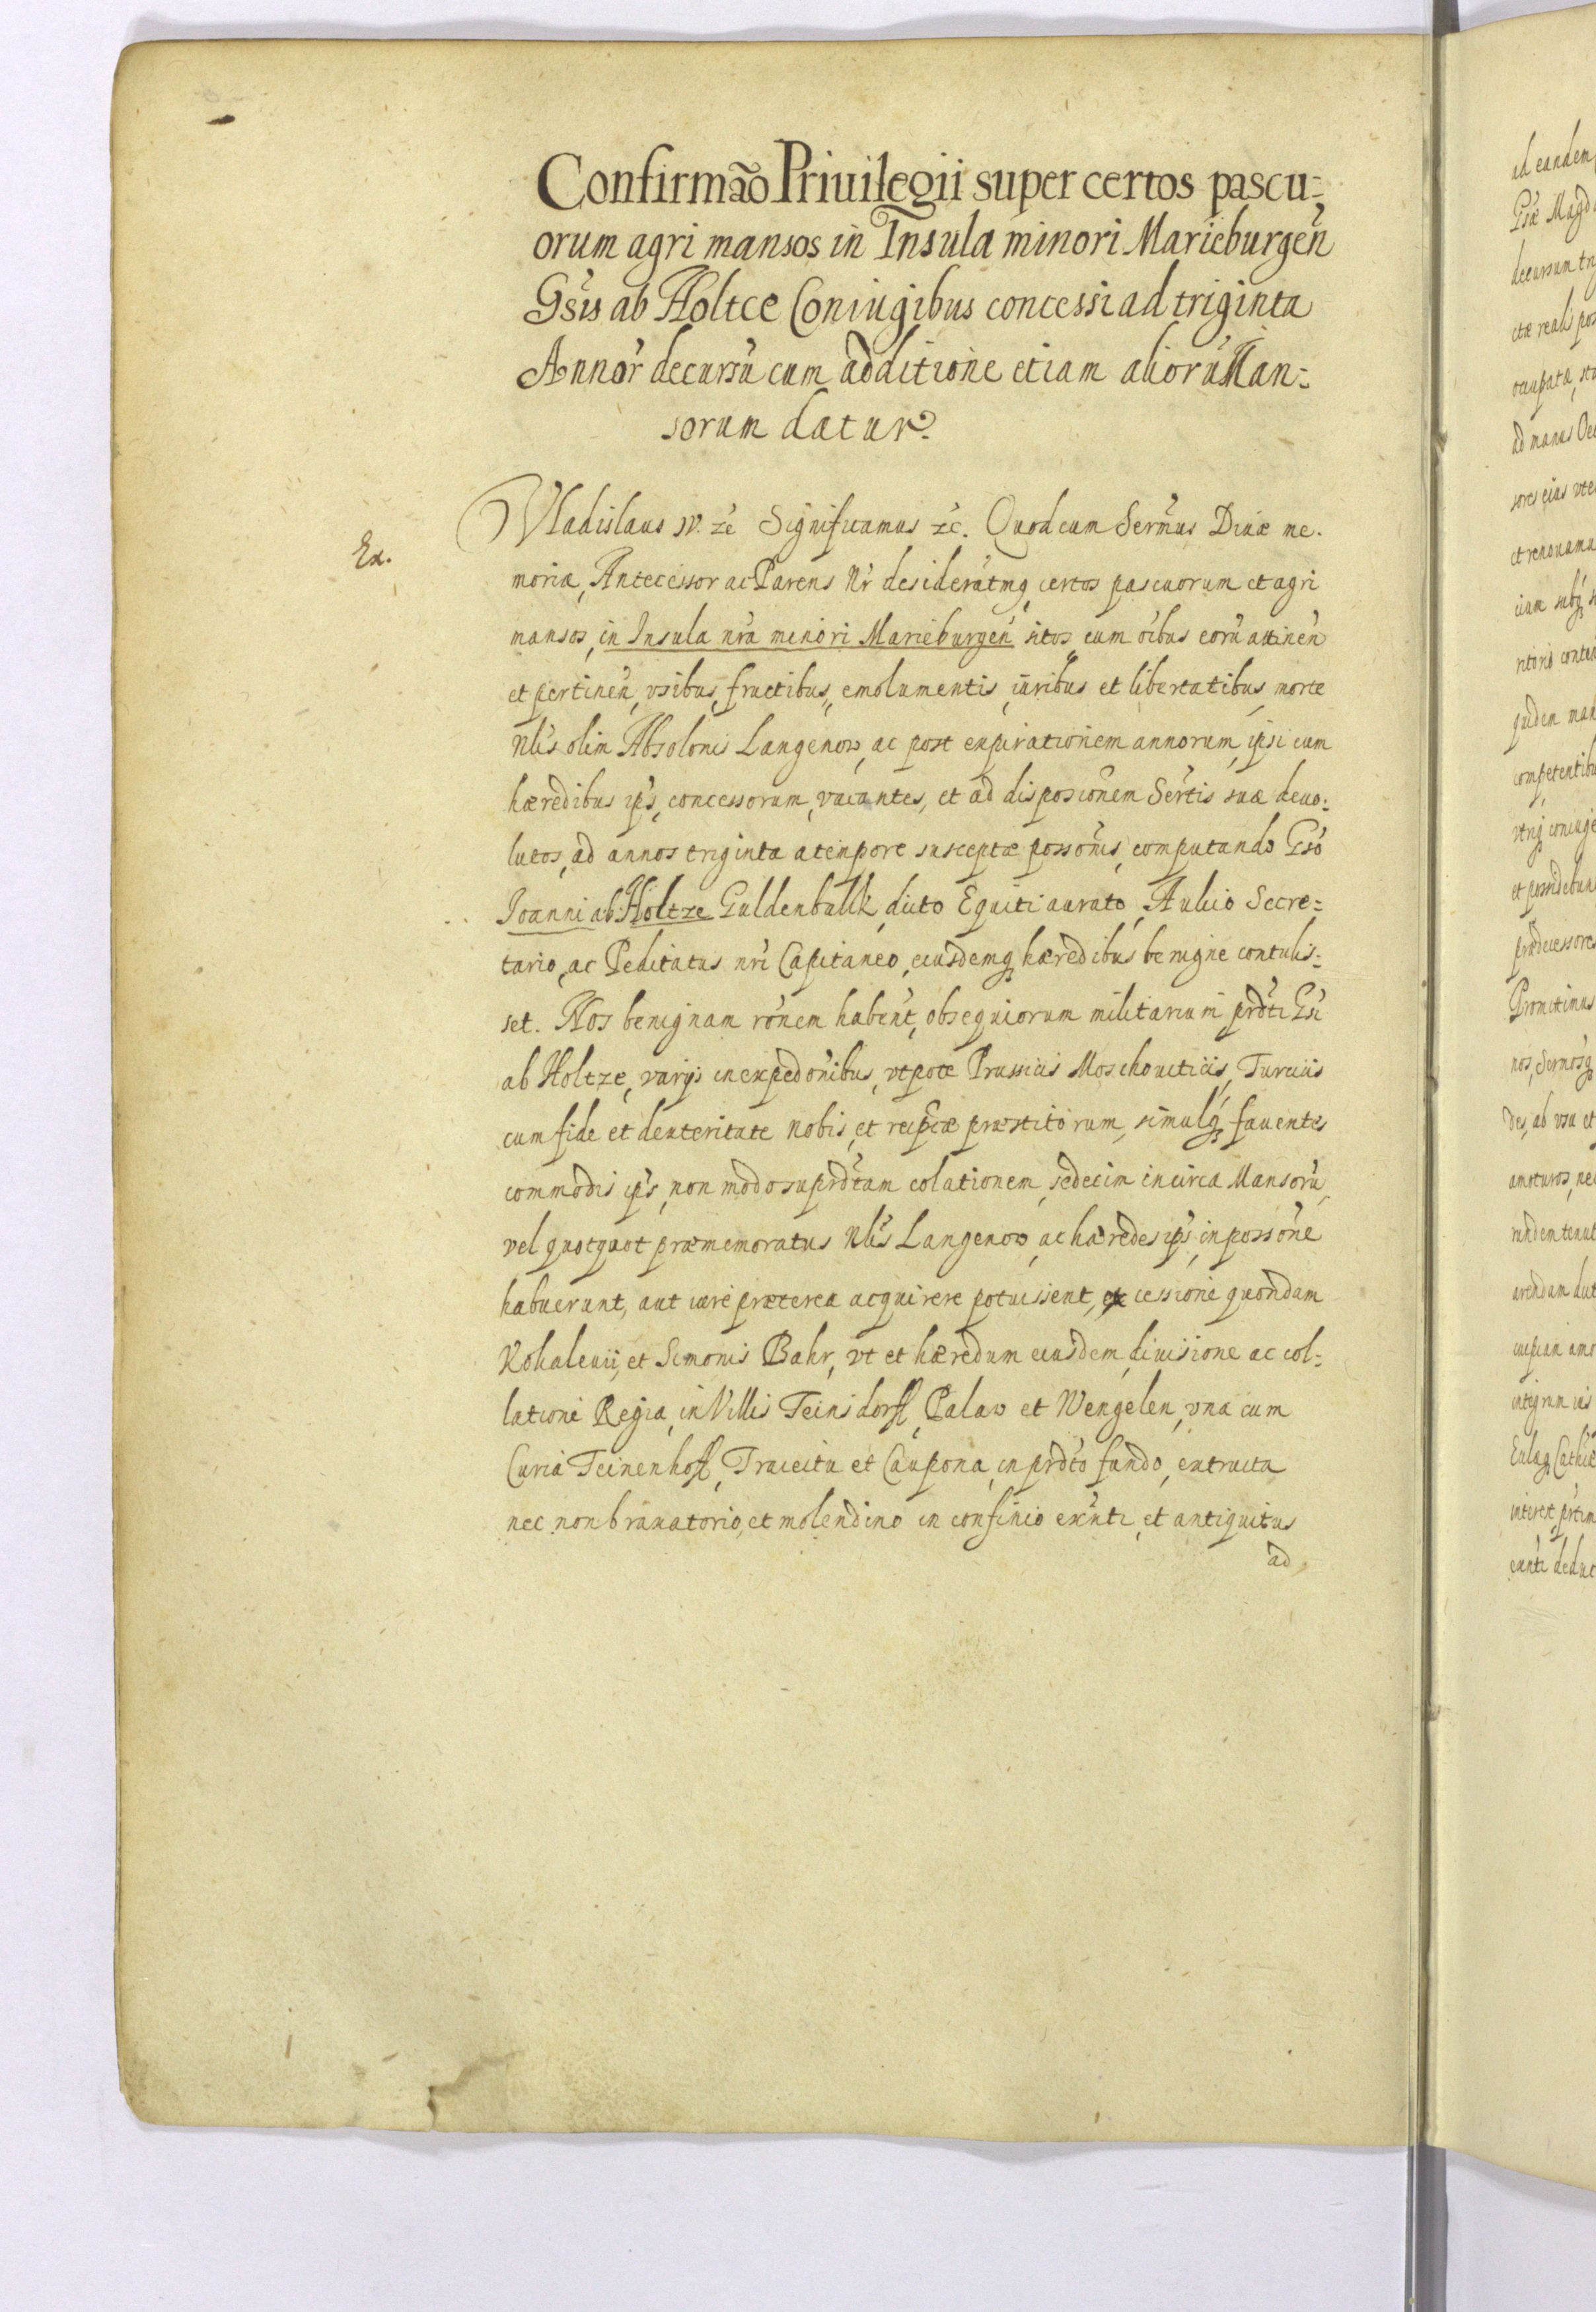 Confirmão Priuilegii super certos pascu=
orum agri mansos in Insula minori Marieburgen̄
Gsis ab Holtce Coniugibus concessi ad triginta
Annor̄ decursū cum additione etiam aliorū Man=
sorum datur.
Ex.
Vladislaus IV. zc̄ Significamus zc̄. Quod cum Serm̄us Diuæ me.
moriæ, Antecessor ac Parens Nr̄ desiderātmq certos pascuorum et agri
mansos, in Insula nr̄a menori Marieburgen̄ sitos, cum oībus eorū attinen̄
et pertinen̄, vsibus, fructibus, emolumentis, iuribus et libertatibus, morte
Nlis̄ olim Absolonis Langenow, ac post expirationem annorum, ipsi cum
hæredibus ips̄, concessorum, vacantes, et ad disposionem̄ Sertis̄ suæ deuo=
lutos, ad annos triginta a tempore susceptæ possonis̄, computando Gso
Ioanni ab Holtze Guldenbalk, dicto Equiti aurato, Aulico Secre=
tario, ac Peditatus nr̄i Capitaneo, eiusdemq hæredibus benigne contulis=
set. Nos benignam ronem̄ haben̄t, obsequiorum militarium prdti Gsi
ab Holtze, varijs in expedonibus̄, vtpote Prussicis Moschouiticis, Turcicis
cum fide et dexteritate nobis, et reipcæ præstitorum, simulq fauentes
commodis ips̄, non modo suprdtam colationem, sedecim in circa Mansorū,
vel quotquot præmemoratus Nlis̄ Langenow, ac hæredes ips̄, in possone
habuerunt, aut iure præterea acquirere potuissent, ex cessione quondam
Kohaleuii, et Simonis Bahr, vt et hæredum eiusdem, diuisione ac col=
latione Regia, in Villis Teinsdorff, Palaw et Wengelen, vna cum
Curia Teinenhoff, Traiectu et Caupona, in prdto fundo, extructa
nec non braxatorio, et molendino in confinio exn̄ti, et antiquitus
ad